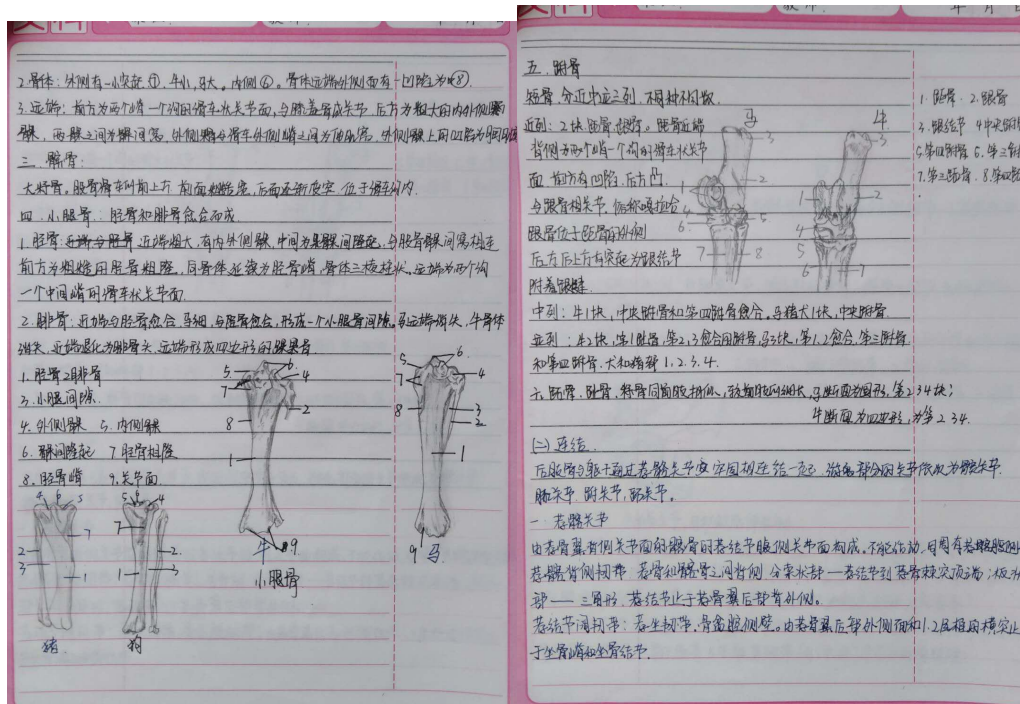 2.骨体：外侧有一小突起①，牛小，马大。内侧⑥。骨体远端外侧面有一凹陷为⑧
3.远端：前方为两个嵴一个沟的滑车状关节面，与膝盖骨成关节，后方为粗大的内外侧
髁，两髁之间为髁间窝，外侧髁与滑车外侧嵴之间为
三、髌骨：
大籽骨。股骨滑车的前上方 前面粗糙 位于滑车沟内.
四、小腿骨：胫骨和腓骨愈合而成.
1.胫骨 近端粗大，有内外侧髁，中间为髁间隆起，与股骨髁间窝相连
前方为粗糙用胫骨粗隆，向骨体延续为胫骨嵴，骨体三棱柱状，远端为两个沟
一个中间嵴的滑车状关节面.
2.腓骨：近端与胫骨愈合，马细，与胫骨愈合，形成一个小腿骨间隙。马远端消失，牛骨体
消失，近端退化为腓骨头，远端形成四边形的踝骨
1.胫骨 2.腓骨
3.小腿间隙.
4.外侧髁 5.内侧髁
6.髁间隆起 7.胫骨粗隆
8.胫骨嵴 9.关节面
5 6 4 7 2 8 3 1 9
牛
5 6 4 7 8 3 2 1 9
马
小腿骨
4 6 5 7 2 3 1
猪
5 6 4 7 2 1 3
狗
年 月
五、跗骨
短骨，分近中远三列，不同种不同数.
近列：2块.距骨，跟骨。距骨近端
背侧为两个嵴一个沟的滑车状关节
面，前方有凹陷，后方凸.
与跟骨相关节，
跟骨位于距骨的外侧
后方后上方有突起为跟结节
附着跟腱.
马
3 1 2 4 5 6 7 8
牛
3 1 2 4 5 6 7
1.距骨. 2.跟骨
3.跟结节 4.中央跗
5.第四跗骨 6.第三
7.第三跖骨. 8.第四跖
中列：牛1块，中央跗骨和第四跗骨愈合.马猪犬1块，中央跗骨.
远列：牛2块，第1跗骨，第2,3愈合用跗骨，马3块，第1,2愈合，第三跗骨
和第四跗骨.犬和猪都1.2.3.4.
六、跖骨、趾骨、籽骨同前肢相似，较前肢的细长，马断面为圆形，第2 3 4块；
牛断面为四边形，为第2 3 4.
(二)连结.
后肢骨与躯干通过荐髂关节牢固相连结一起，游离部分的关节依次为髋关节.
膝关节.跗关节，趾关节。
一、荐髂关节
由荐骨翼背侧关节面的髂骨的荐结节腹侧关节面构成。不能活动，周围有
荐髂背侧韧带：荐骨和髂骨之间背侧，分索状部——荐结节到荐骨棘突顶端；板状
部——三角形，荐结节止于荐骨翼后部背外侧。
荐结节阔韧带：荐坐韧带，骨盆腔侧壁。由荐骨翼后部外侧面和1.2尾椎的横突止
于坐骨嵴和坐骨结节.